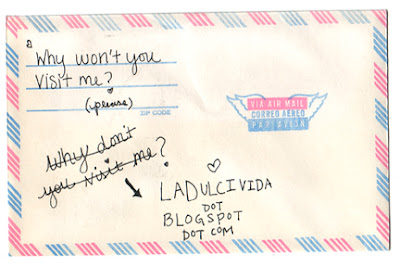 Why won't you
visit me?
(please)
ZIP CODE
VIA AIR MAIL
CORREO AEREO
PAR AVION
Why don't
you visit me?
LADULCIVIDA
DOT
BLOGSPOT
DOT COM